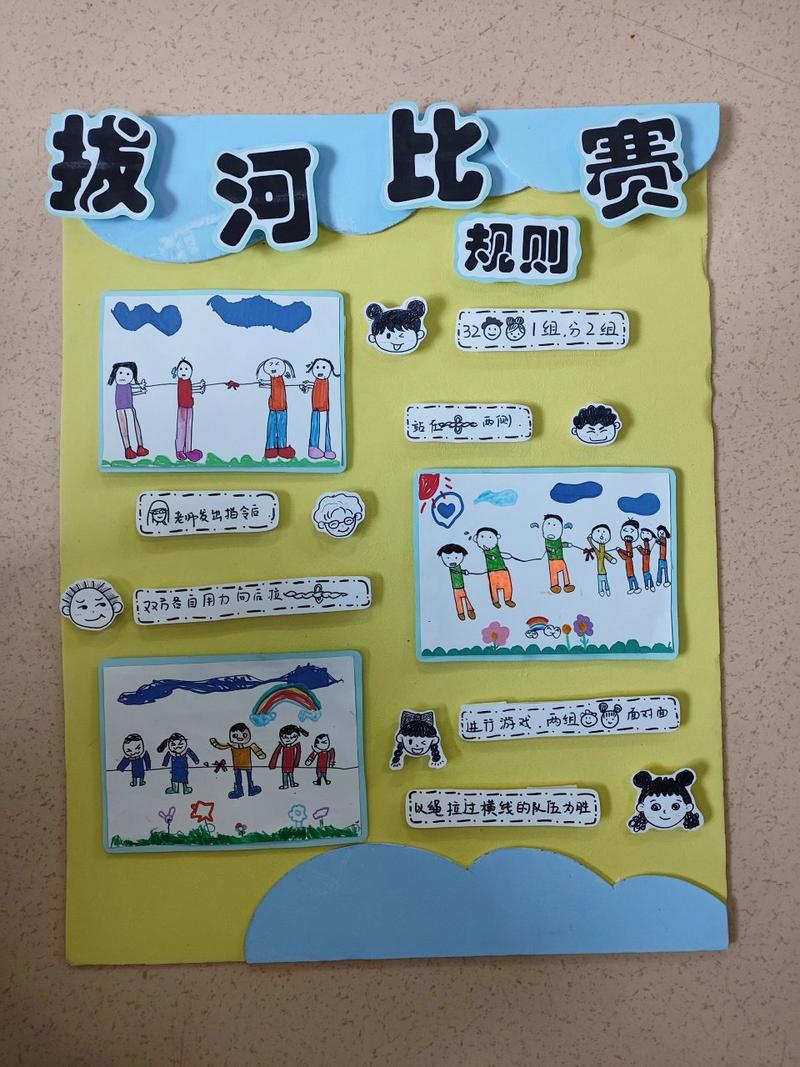 拔河比赛
规则
32 1组,分2组
站在 两侧.
老师发出指令后
双方各自用力向后拉
进行游戏.两组 面对面
以绳拉过横线的队伍为胜